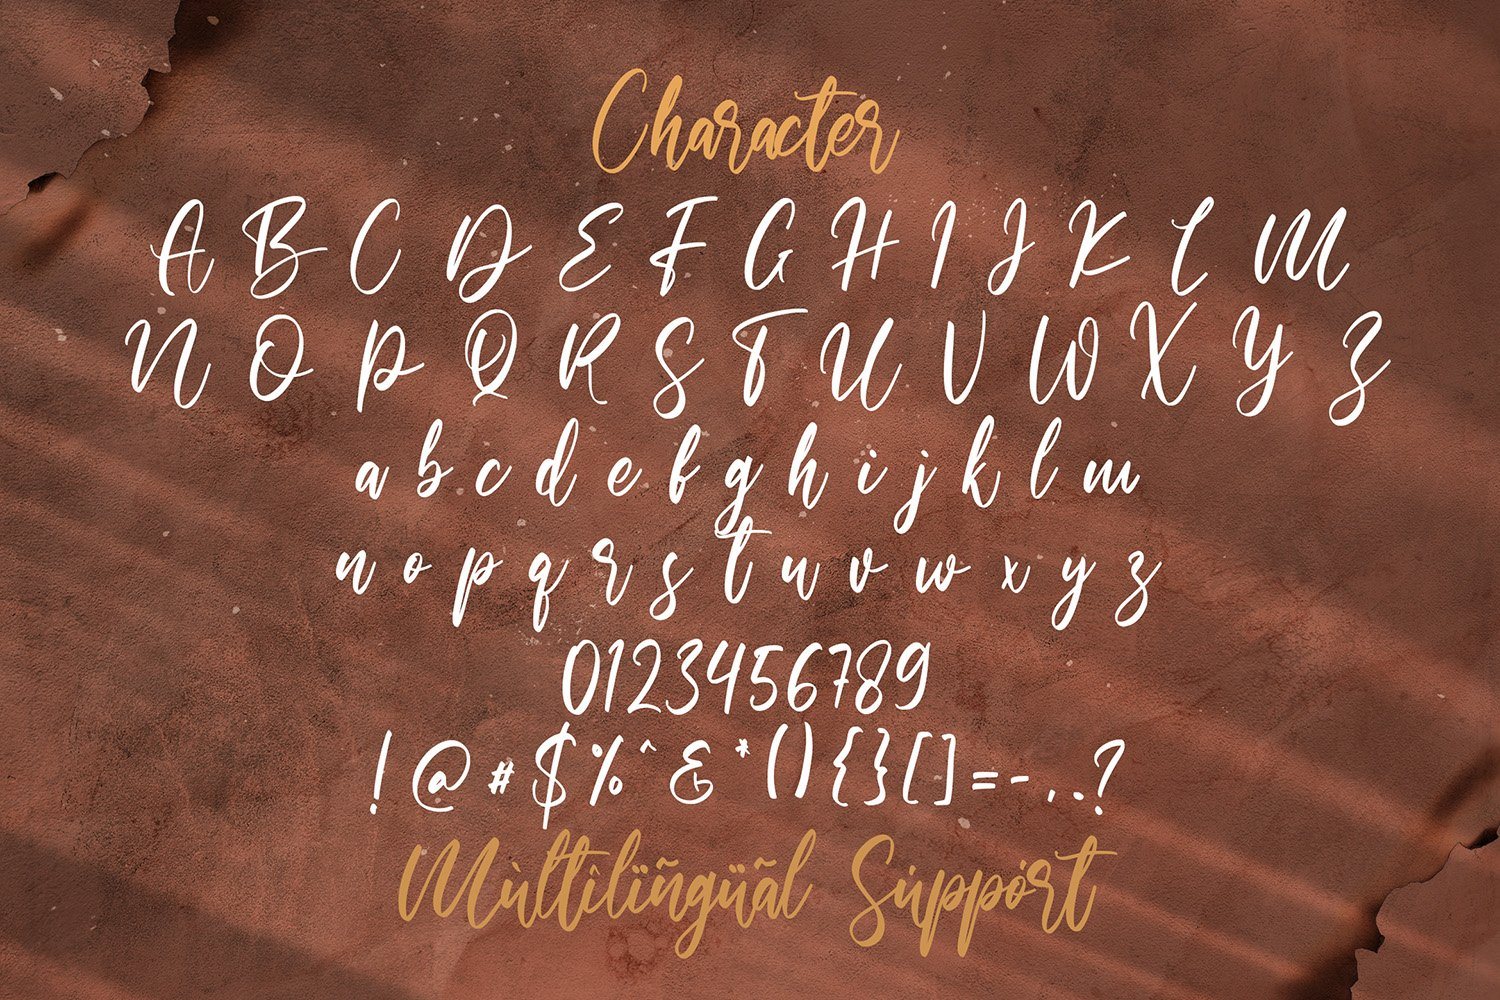 Character
A B C D E F G H I J K L M
N O P Q R S T U V W X Y Z
a b c d e f g h i j k l m
n o p q r s t u v w x y z
0123456789
! @ # $ % ^ & * () {} [] = - , . ?
Mùltîlïñgüãl Súppórt